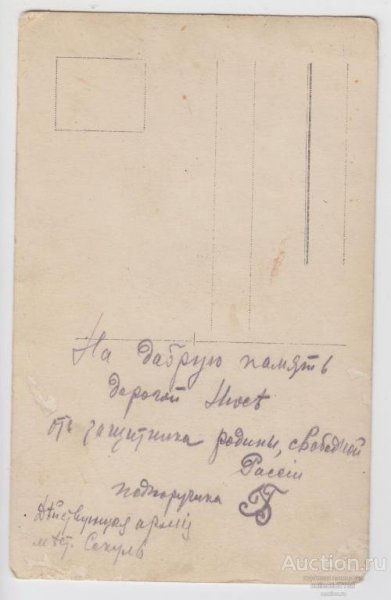 На дабрую память
дорогой Нюсѣ
отъ защитника родины, свободной
Рассіи
подпоручика
Дѣйствующая армія
мѣст. Секуль
Auction.ru